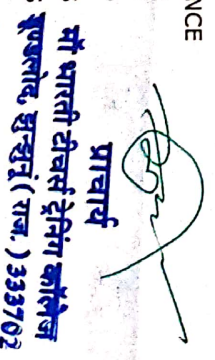 NCE
प्राचार्य
माँ भारती टीचर्स ट्रेनिंग कॉलेज
झुन्झुनूं (राज.) 333702